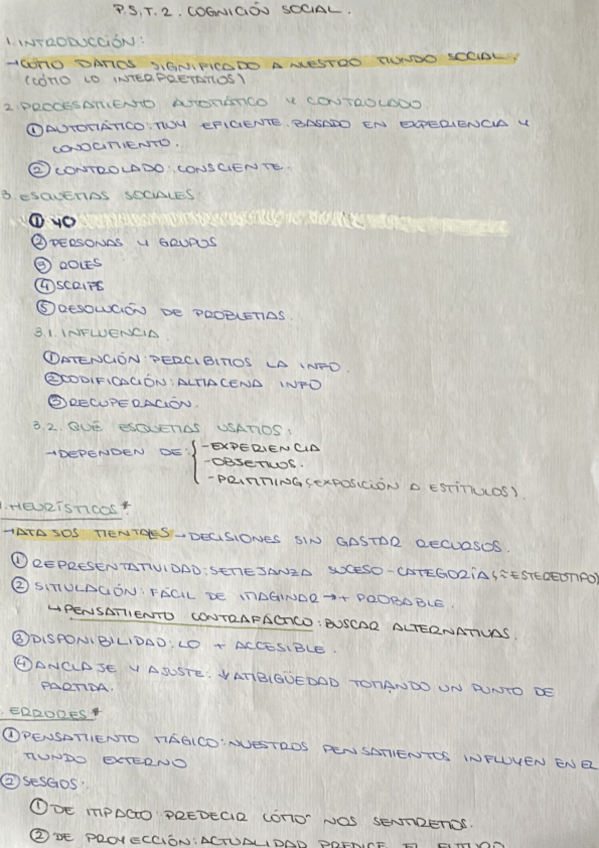 P.S.T.2. COGNICIÓN SOCIAL.
1. INTRODUCCIÓN:
→CÓMO DAMOS SIGNIFICADO A NUESTRO MUNDO SOCIAL.
(CÓMO LO INTERPRETAMOS)
2. PROCESAMIENTO AUTOMÁTICO Y CONTROLADO
① AUTOMÁTICO: MUY EFICIENTE. BASADO EN EXPERIENCIA Y
CONOCIMIENTO.
② CONTROLADO: CONSCIENTE.
3. ESQUEMAS SOCIALES:
① YO
② PERSONAS Y GRUPOS
③ ROLES
④ SCRIPS
⑤ RESOLUCIÓN DE PROBLEMAS.
3.1. INFLUENCIA
① ATENCIÓN: PERCIBIMOS LA INFO.
② CODIFICACIÓN: ALMACENA INFO
③ RECUPERACIÓN.
3.2. QUÉ ESQUEMAS USAMOS:
→DEPENDEN DE: { -EXPERIENCIA
-OBJETIVOS.
-PRIMMING (EXPOSICIÓN A ESTÍMULOS).
. HEURÍSTICOS*
→ATAJOS MENTALES→DECISIONES SIN GASTAR RECURSOS.
① REPRESENTATIVIDAD: SEMEJANZA SUCESO-CATEGORÍA (≈ESTEREOTIPO)
② SIMULACIÓN: FÁCIL DE IMAGINAR → + PROBABLE.
↳PENSAMIENTO CONTRAFÁCTICO: BUSCAR ALTERNATIVAS.
③ DISPONIBILIDAD: LO + ACCESIBLE.
④ ANCLAJE Y AJUSTE: ↓AMBIGÜEDAD TOMANDO UN PUNTO DE
PARTIDA.
. ERRORES*
① PENSAMIENTO MÁGICO: NUESTROS PENSAMIENTOS INFLUYEN EN EL
MUNDO EXTERNO
② SESGOS:
① DE IMPACTO: PREDECIR CÓMO NOS SENTIREMOS.
② DE PROYECCIÓN: ACTUALIDAD PREDICE EL FUTURO